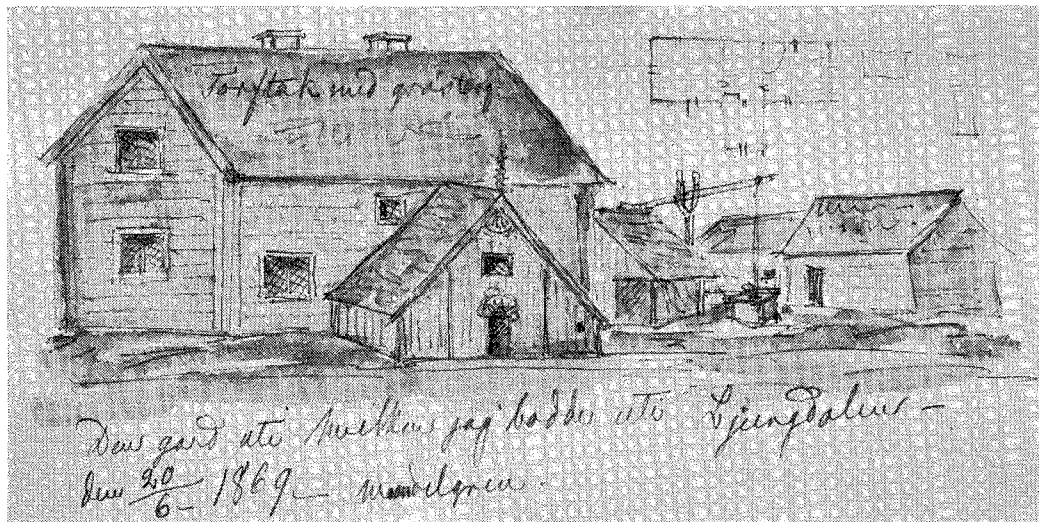 Torftak med
Den gård uti hvilken jag bodde uti Ljungdalen –
den 20/6 – 1869 – Mandelgren.